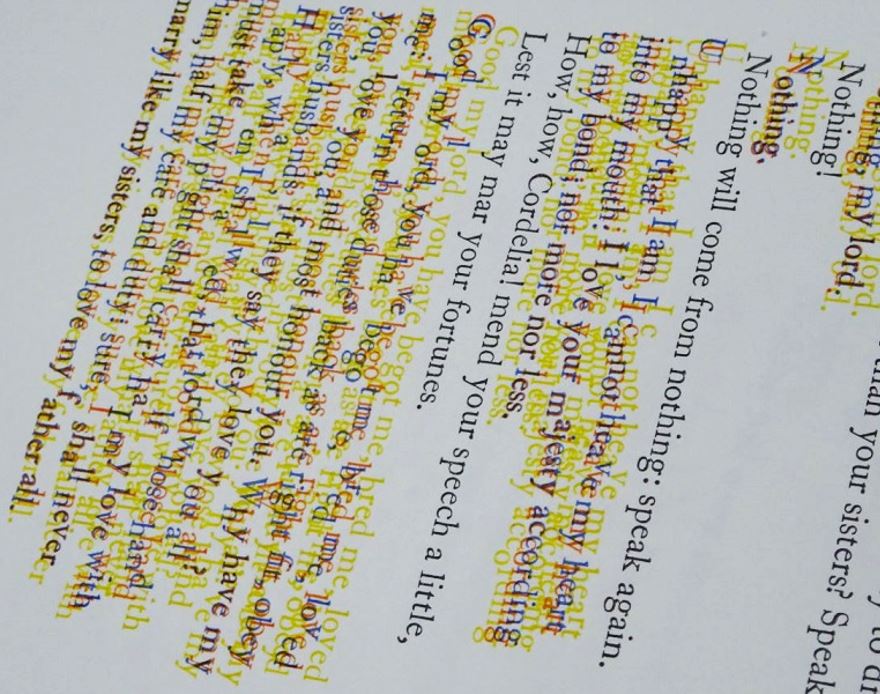 than your sisters? Speak
thing, my lord.
Nothing!
Nothing.
Nothing will come from nothing: speak again.
Unhappy that I am, I cannot heave my heart
into my mouth: I love your majesty according
to my bond; nor more nor less.
How, how, Cordelia! mend your speech a little,
Lest it may mar your fortunes.
Good my lord, you have begot me, bred me, loved
me: I return those duties back as are right fit, obey
you, love you, and most honour you. Why have my
sisters husbands, if they say they love you all?
Haply, when I shall wed, that lord whose hand
must take my plight shall carry half my love with
him, half my care and duty: sure, I shall never
marry like my sisters, to love my father all.